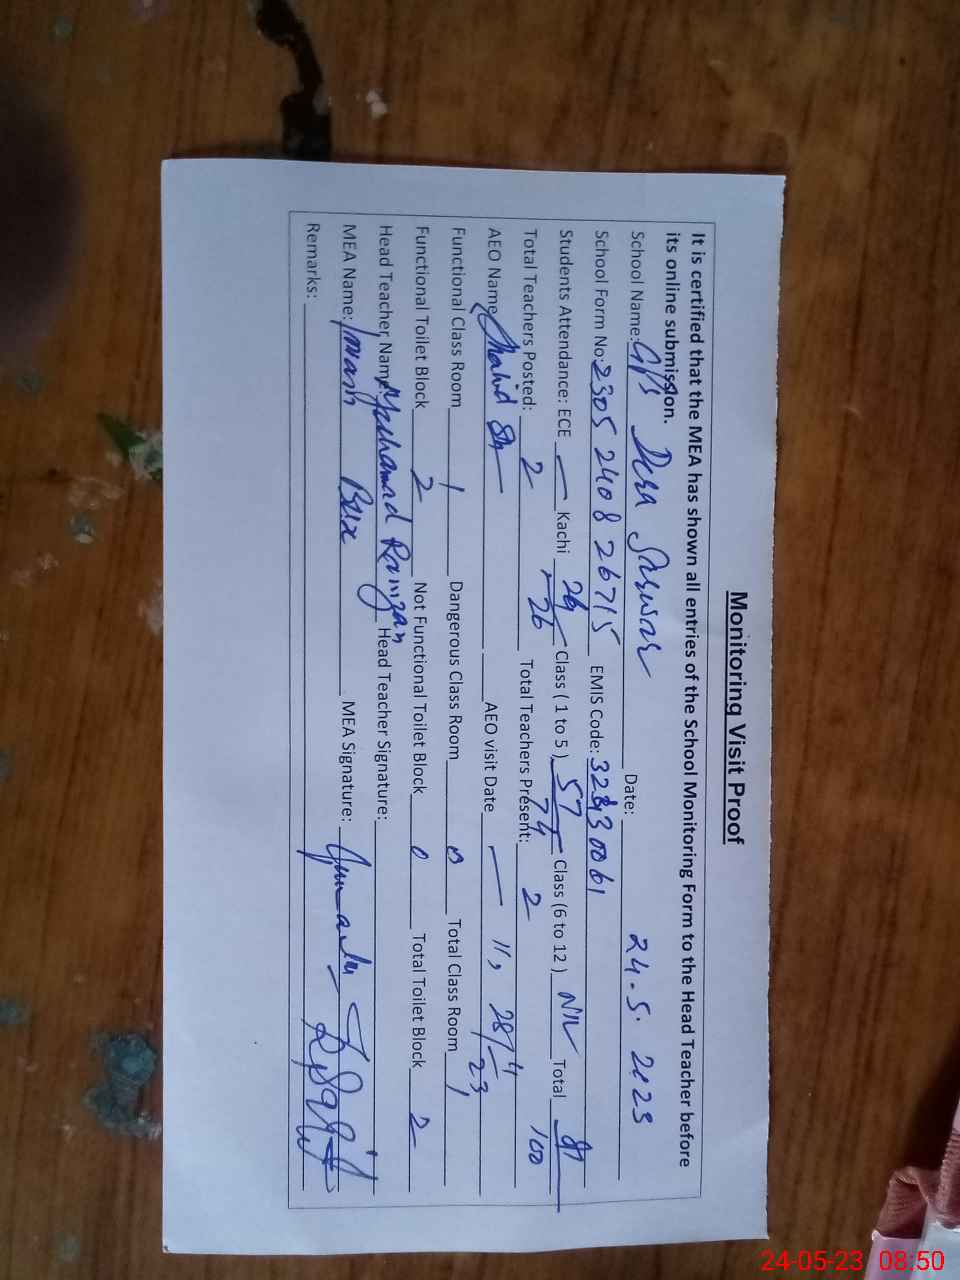 Monitoring Visit Proof
It is certified that the MEA has shown all entries of the School Monitoring Form to the Head Teacher before
its online submission.
School Name: GPS Dera Sarwar Date: 24.5.2023
School Form No: 2305 2408 26715 EMIS Code: 32330061
Students Attendance: ECE — Kachi 26 Class ( 1 to 5 ) 57 Class (6 to 12 ) NIL Total
26 74 100
Total Teachers Posted: 2 Total Teachers Present: 2
AEO Name AEO visit Date — 11, 28/4/23
Functional Class Room 1 Dangerous Class Room 0 Total Class Room
Functional Toilet Block 2 Not Functional Toilet Block 0 Total Toilet Block 2
Head Teacher Name Muhammad Ramzan Head Teacher Signature:
MEA Name: Bux MEA Signature:
Remarks:
24-05-23 08:50